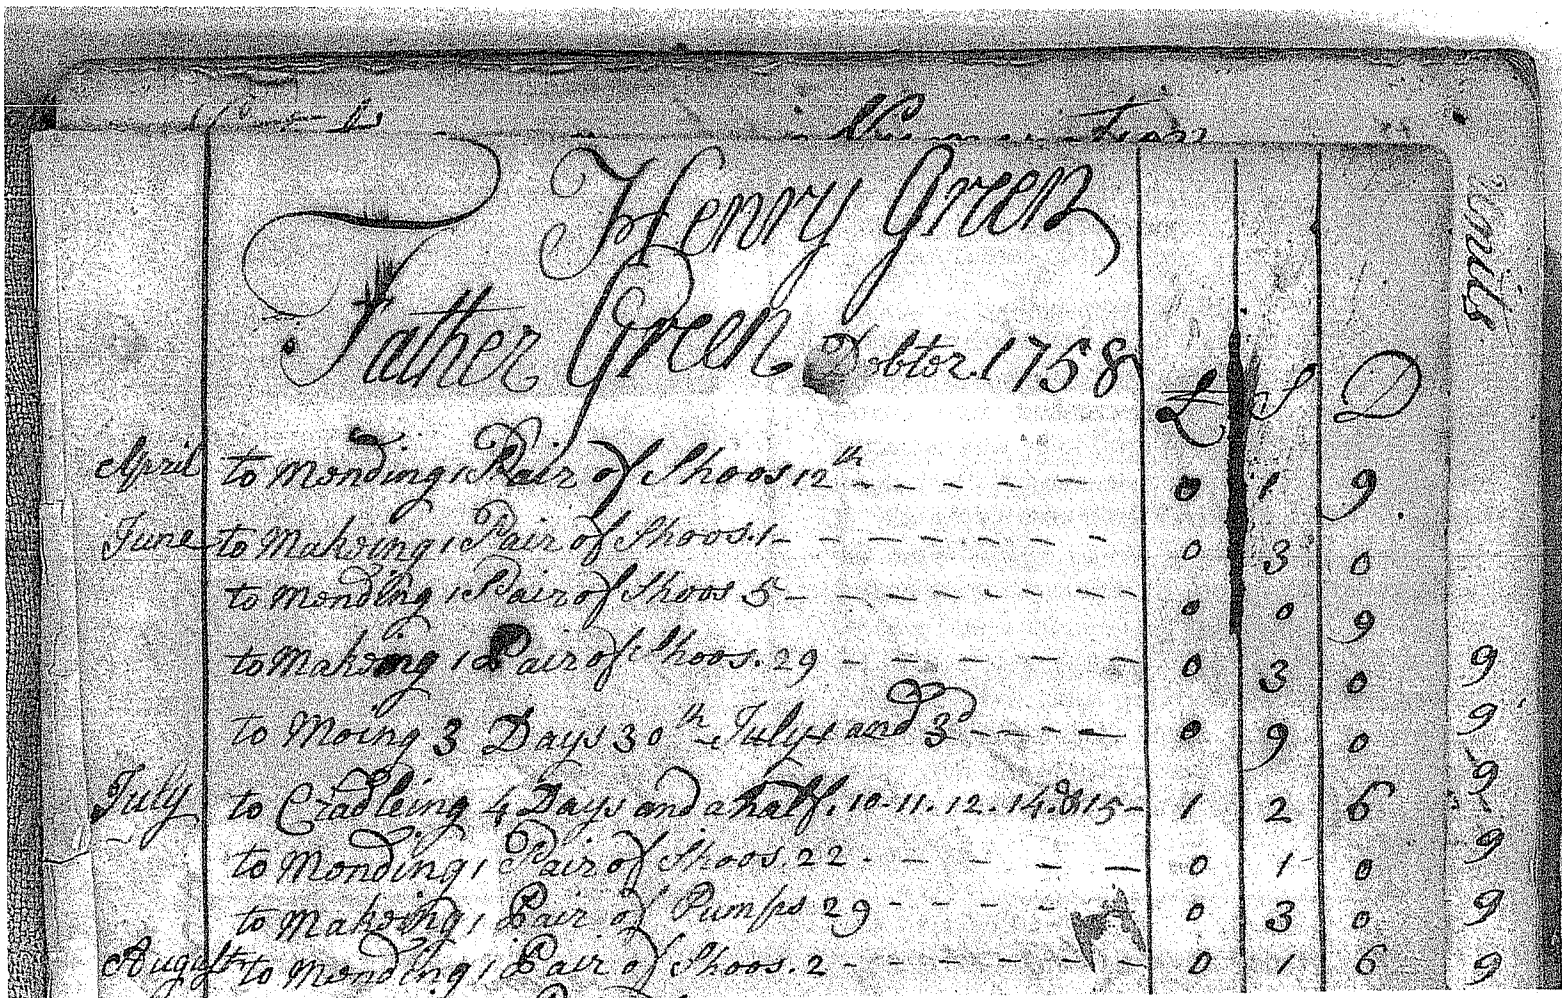 Numeration
Units
Henry Green
Father Green Debter. 1758
£ S D
April to Mending 1 Pair of Shoos 12th 0 1 9
June to Makeing 1 Pair of Shoos. 1 0 3 0
to Mending 1 Pair of Shoos 5 0 0 9
to Makeing 1 Pair of Shoos. 29 0 3 0 9
to Moing 3 Days 30th July 1 and 3d 0 9 0 9
July to Cradleing 4 Days and a half. 10-11.12-14.&15 1 2 6 9
to Mending 1 Pair of Shoos. 22 0 1 0 9
to Makeing 1 Pair of Pumps 29 0 3 0 9
August to Mending 1 Pair of Shoos. 2 0 1 6 9